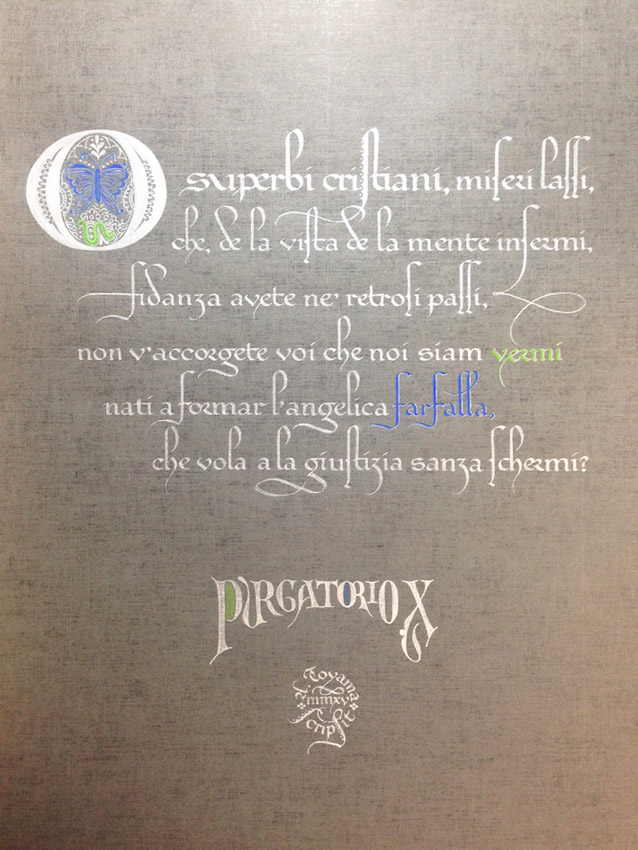 O superbi cristiani, miseri lassi,
che, de la vista de la mente infermi,
fidanza avete ne' retrosi passi,
non v'accorgete voi che noi siam vermi
nati a formar l'angelica farfalla,
che vola a la giustizia sanza schermi?
PURGATORIO X
Toyama
mmxv
scripsit